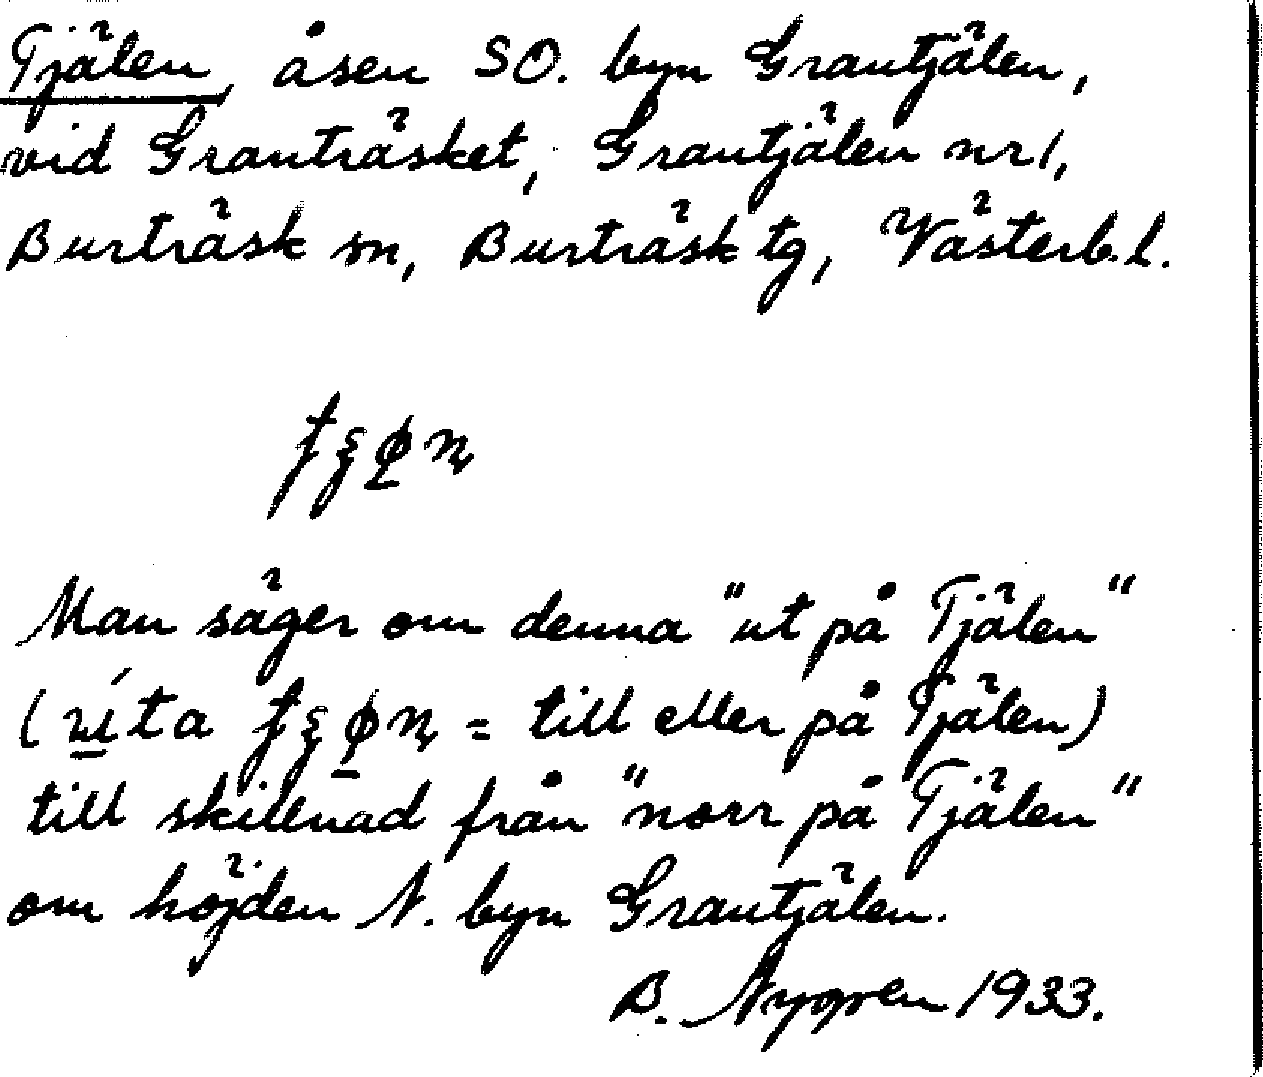 Tjälen, åsen SO. byn Grantjälen,
vid Granträsket, Grantjälen nr 1,
Burträsk sn, Burträsk tg, Västerb. l.
Man säger om denna "ut på Tjälen"
= till eller på Tjälen)
till skillnad från "norr på Tjälen"
om höjden N. byn Grantjälen.
B. Nygren 1933.